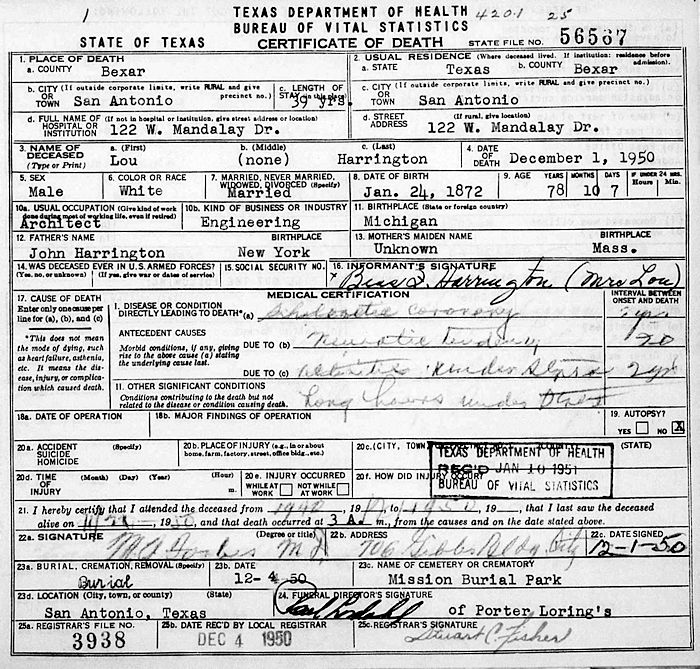 1
TEXAS DEPARTMENT OF HEALTH
420.1 25
BUREAU OF VITAL STATISTICS
STATE OF TEXAS CERTIFICATE OF DEATH STATE FILE NO. 56567
1. PLACE OF DEATH
a. COUNTY Bexar
2. USUAL RESIDENCE (Where deceased lived. If institution: residence before admission).
a. STATE Texas b. COUNTY Bexar
b. CITY (If outside corporate limits, write RURAL and give precinct no.) OR TOWN San Antonio
c. LENGTH OF STAY (in this place) 39 yrs.
c. CITY (If outside corporate limits, write RURAL and give precinct no.) OR TOWN San Antonio
d. FULL NAME OF HOSPITAL OR INSTITUTION (If not in hospital or institution, give street address or location) 122 W. Mandalay Dr.
d. STREET ADDRESS (If rural, give location) 122 W. Mandalay Dr.
3. NAME OF DECEASED (Type or Print) a. (First) Lou b. (Middle) (none) c. (Last) Harrington
4. DATE OF DEATH December 1, 1950
5. SEX Male
6. COLOR OR RACE White
7. MARRIED, NEVER MARRIED, WIDOWED, DIVORCED (Specify) Married
8. DATE OF BIRTH Jan. 24, 1872
9. AGE YEARS 78 MONTHS 10 DAYS 7 IF UNDER 24 HRS. Hours Min.
10a. USUAL OCCUPATION (Give kind of work done during most of working life, even if retired) Architect
10b. KIND OF BUSINESS OR INDUSTRY Engineering
11. BIRTHPLACE (State or foreign country) Michigan
12. FATHER'S NAME John Harrington BIRTHPLACE New York
13. MOTHER'S MAIDEN NAME Unknown BIRTHPLACE Mass.
14. WAS DECEASED EVER IN U.S. ARMED FORCES? (Yes, no, or unknown) (If yes, give war or dates of service)
15. SOCIAL SECURITY NO.
16. INFORMANT'S SIGNATURE
x Bess Harrington (Mrs Lou)
17. CAUSE OF DEATH
Enter only one cause per line for (a), (b), and (c)
*This does not mean the mode of dying, such as heart failure, asthenia, etc. It means the disease, injury, or complication which caused death.
MEDICAL CERTIFICATION
INTERVAL BETWEEN ONSET AND DEATH
I. DISEASE OR CONDITION DIRECTLY LEADING TO DEATH* (a) coronary
ANTECEDENT CAUSES
Morbid conditions, if any, giving rise to the above cause (a) stating the underlying cause last.
DUE TO (b) tendency 20
DUE TO (c) under 2 yrs
II. OTHER SIGNIFICANT CONDITIONS
Conditions contributing to the death but not related to the disease or condition causing death.
Long hours under
18a. DATE OF OPERATION
18b. MAJOR FINDINGS OF OPERATION
19. AUTOPSY? YES NO X
20a. ACCIDENT SUICIDE HOMICIDE (Specify)
20b. PLACE OF INJURY (e.g., in or about home, farm, factory, street, office bldg., etc.)
20c. (CITY, TOWN, OR PRECINCT NO.) (COUNTY) (STATE)
TEXAS DEPARTMENT OF HEALTH
REC'D JAN 10 1951
BUREAU OF VITAL STATISTICS
20d. TIME OF INJURY (Month) (Day) (Year) (Hour) m.
20e. INJURY OCCURRED WHILE AT WORK NOT WHILE AT WORK
20f. HOW DID INJURY OCCUR?
21. I hereby certify that I attended the deceased from 1940, 19 , to 1950, 19 , that I last saw the deceased
alive on , 1950, and that death occurred at 3 A. m., from the causes and on the date stated above.
22a. SIGNATURE (Degree or title) M.D.
22b. ADDRESS 706 Gibbs Bldg. City
22c. DATE SIGNED 12-1-50
23a. BURIAL, CREMATION, REMOVAL (Specify) Burial
23b. DATE 12-4-50
23c. NAME OF CEMETERY OR CREMATORY Mission Burial Park
23d. LOCATION (City, town, or county) (State) San Antonio, Texas
24. FUNERAL DIRECTOR'S SIGNATURE of Porter Loring's
25a. REGISTRAR'S FILE NO. 3938
25b. DATE REC'D BY LOCAL REGISTRAR DEC 4 1950
25c. REGISTRAR'S SIGNATURE Stuart C. Fisher